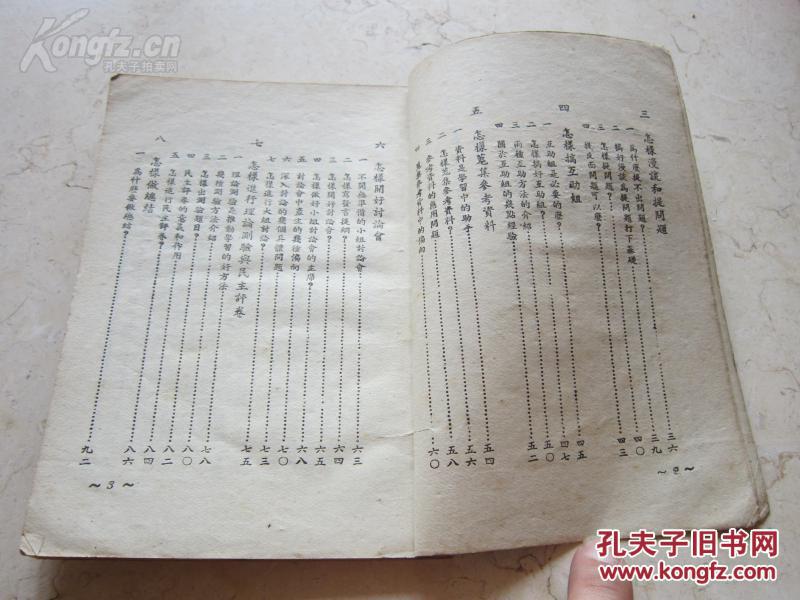 Kongfz.cn
孔夫子拍卖网
三 怎樣漫談和提問題 三六
一 爲什麽提不出問題? 三九
二 搞好漫談爲提問題打下基礎 四〇
三 怎樣擬問題? 四三
四 提反面問題可以麽? 四五
四 怎樣搞互助組 四七
一 互助組是必要的麽?
二 怎樣搞好互助組?
三 兩種互助方法的介紹
四 關於互助組的幾點經驗 五二
五 怎樣蒐集參考資料 五四
一 資料是學習中的助手
二 怎樣蒐集參考資料? 五八
三 參考資料的應用問題 六〇
四 蒐集參考資料中的偏向
~2~
六 怎樣開好討論會 六三
一 不開無準備的小組討論會
二 怎樣寫發言提綱?
三 怎樣開好討論會? 六四
四 怎樣做好小組討論會的主席? 六五
五 討論會中產生的幾種偏向 六八
六 深入討論的幾個具體問題 七〇
七 怎樣進行大組討論? 七三
七 怎樣進行理論測驗與民主評卷 七五
一 理論測驗是推動學習的好方法
二 幾種測驗方法介紹
三 怎樣出測驗題目? 七八
四 民主評卷的意義和作用 八〇
五 怎樣進行民主評卷? 八二
八 怎樣做總結 八四
一 爲什麽要做總結? 八六
九二
~3~
孔夫子旧书网
www.kongfz.com